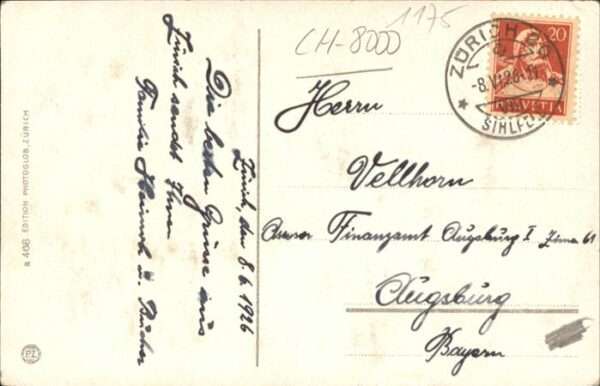 CH-8000
1175
20
HELVETIA
ZÜRICH
-8.VI.26-
SIHLFELD
Zürich, den 8.6.1926
Die besten Grüsse aus
Zürich sendet Ihnen
Familie Heinrich
Herrn
Vellhorn
Finanzamt Augsburg I
Augsburg
Bayern
a 406 EDITION PHOTOGLOB, ZÜRICH
PZ